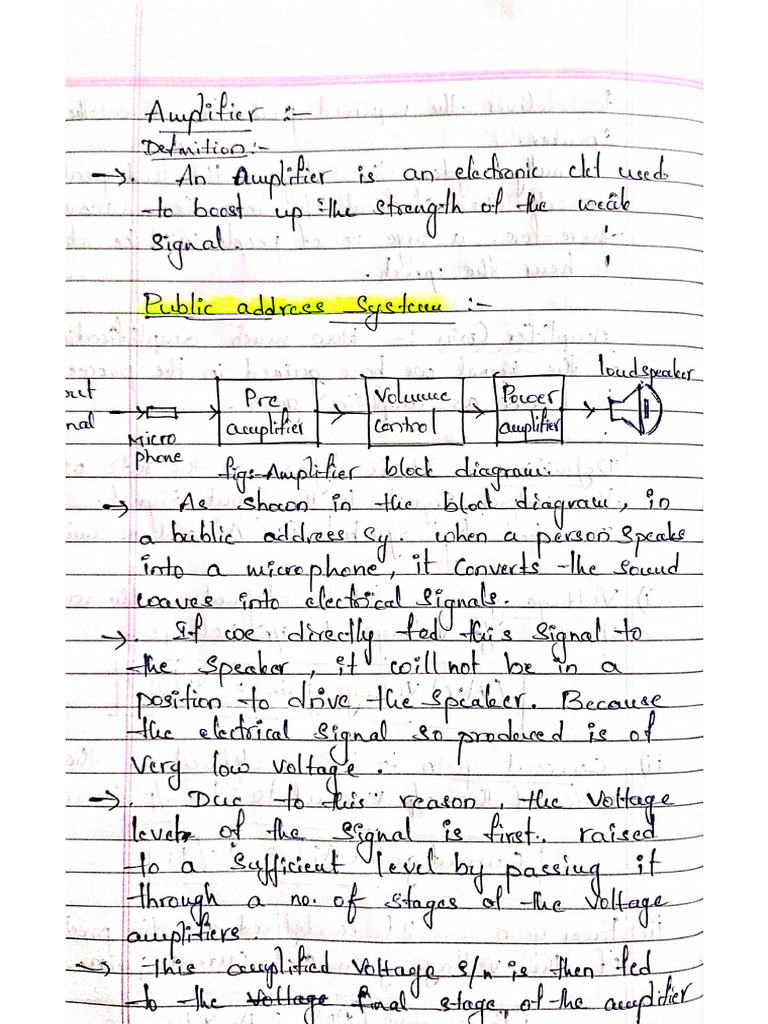 Amplifier :-
Definition :-
→. An Amplifier is an electronic ckt used
to boost up the strength of the weak
signal.
Public address System :-
loudspeaker
Pre
amplifier
Volume
control
Power
amplifier
nal
Micro
phone
fig:- Amplifier block diagram.
→ As shown in the block diagram, in
a public address sy. when a person speaks
into a microphone, it converts the sound
waves into electrical signals.
→. If we directly fed this signal to
the speaker, it will not be in a
position to drive the speaker. Because
the electrical signal so produced is of
very low voltage.
→. Due to this reason, the voltage
level of the signal is first. raised
to a sufficient level by passing it
through a no. of stages of the voltage
amplifiers.
→ This amplified voltage s/n is then fed
to the voltage final stage of the amplifier